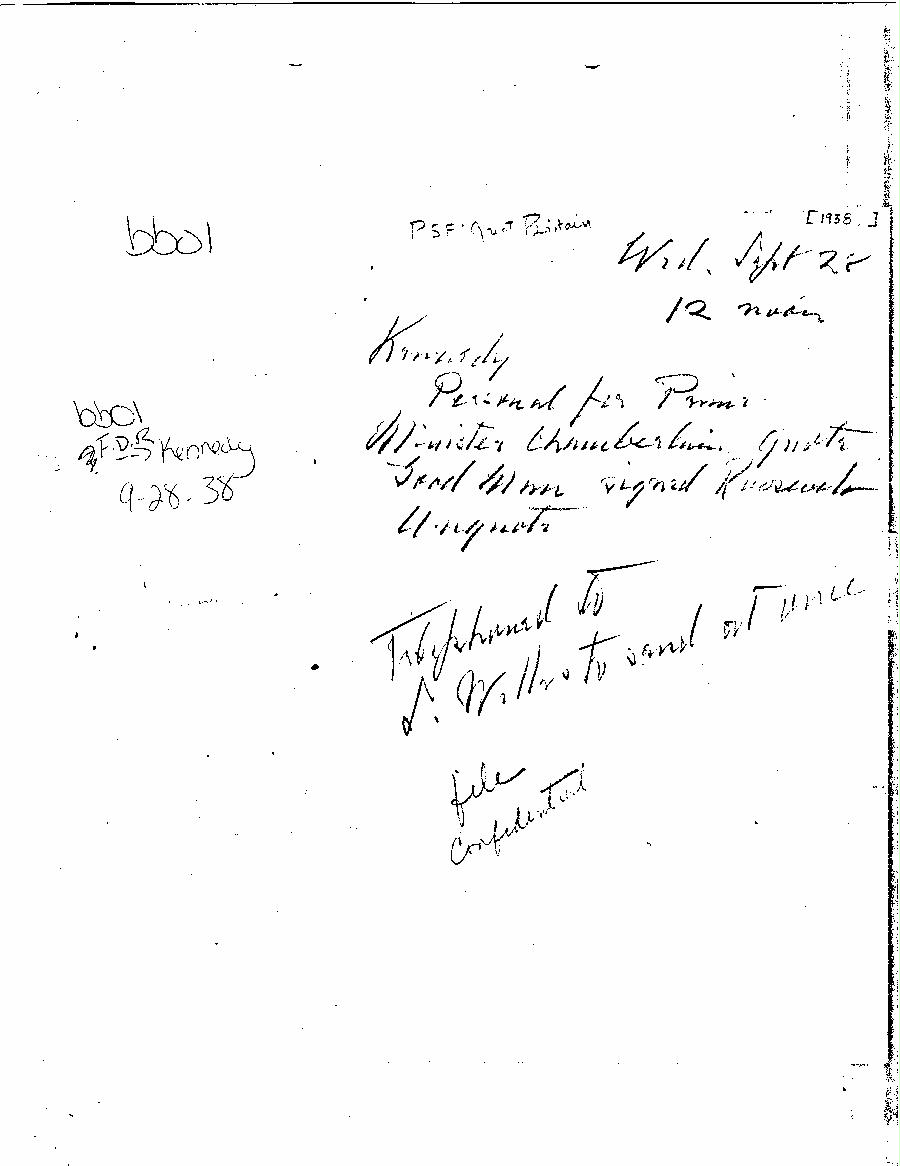 bb01
PSF: Great Britain
[1938]
Wed. Sept 28
12 noon
Kennedy
Personal for Prime
Minister Chamberlain Quote
Good Man signed Roosevelt
Unquote
bb01
F.D.R Kennedy
9-28-38
Telephoned to
S. Welles to send at once
file
Confidential